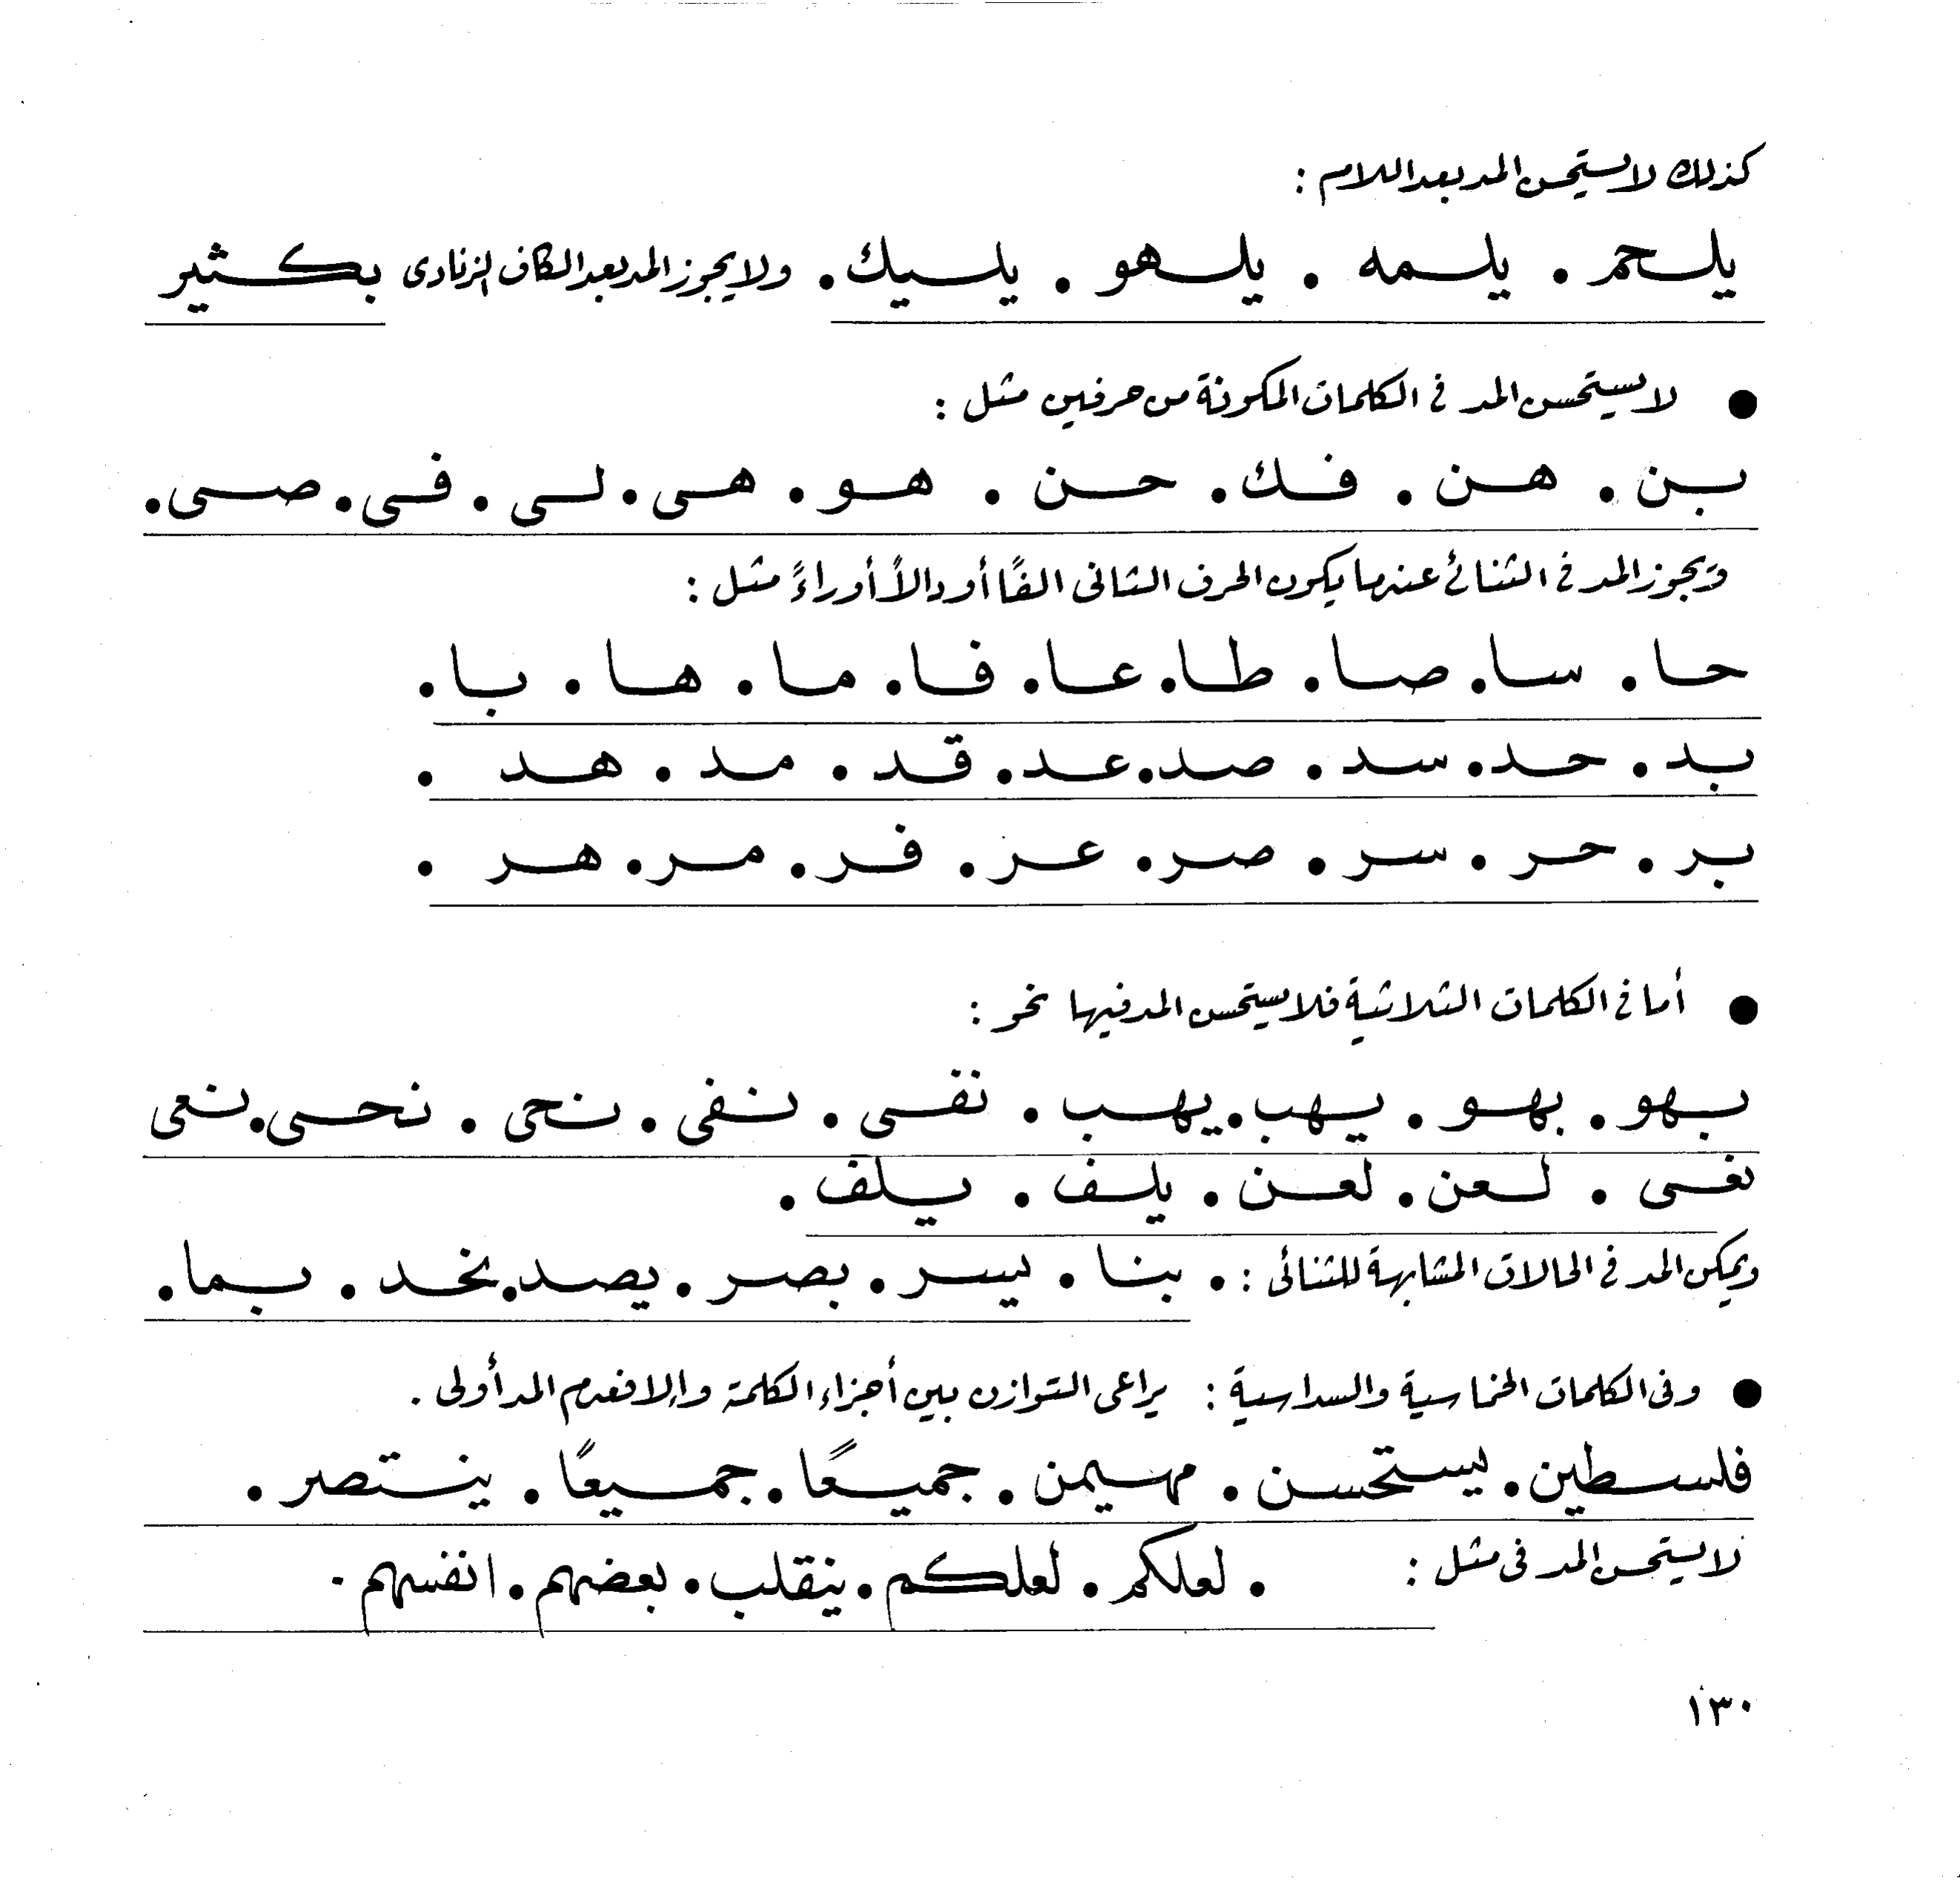 كذلك لا يستحسن المد بعد اللام :
يلـحم . يلـمه . يلـهو . يلـيك . ولا يجوز المد بعد الكاف الزنادى بكـثير
● لا يستحسن المد فى الكلمات المكونة من حرفين مثل :
بـن . هـن . فـك . حـن . هـو . هـى . لـى . فـى . صـى .
ويجوز المد فى الثنائى عندما يكون الحرف الثانى الفًا أو دالاً أو راءً مثل :
حـا . سـا . صـا . طـا . عـا . فـا . مـا . هـا . بـا .
بـد . حـد . سـد . صـد . عـد . قـد . مـد . هـد .
بـر . حـر . سـر . صـر . عـر . فـر . مـر . هـر .
● أما فى الكلمات الثلاثية فلا يستحسن المد فيها نحو :
بـهو . بهـو . يـهب . يهـب . نقـى . نـفى . نـحى . نحـى . نـعى
نغـى . لـعن . لعـن . يلـف . يـلف .
ويمكن المد فى الحالات المشابهة للثنائى : . بنـا . يسـر . بصـر . يصـد . نخـد . بـما .
● وفى الكلمات الخماسية والسداسية : يراعى التوازن بين أجزاء الكلمة وإلا فعدم المد أولى .
فلسـطين . يسـتحسن . مهـيمن . جميـعًا . جمـيعًا . ينـتصر .
لا يستحسن المد فى مثل : . لعلكم . لعلكم . ينقلب . بعضهم . انفسهم .
١٣٠